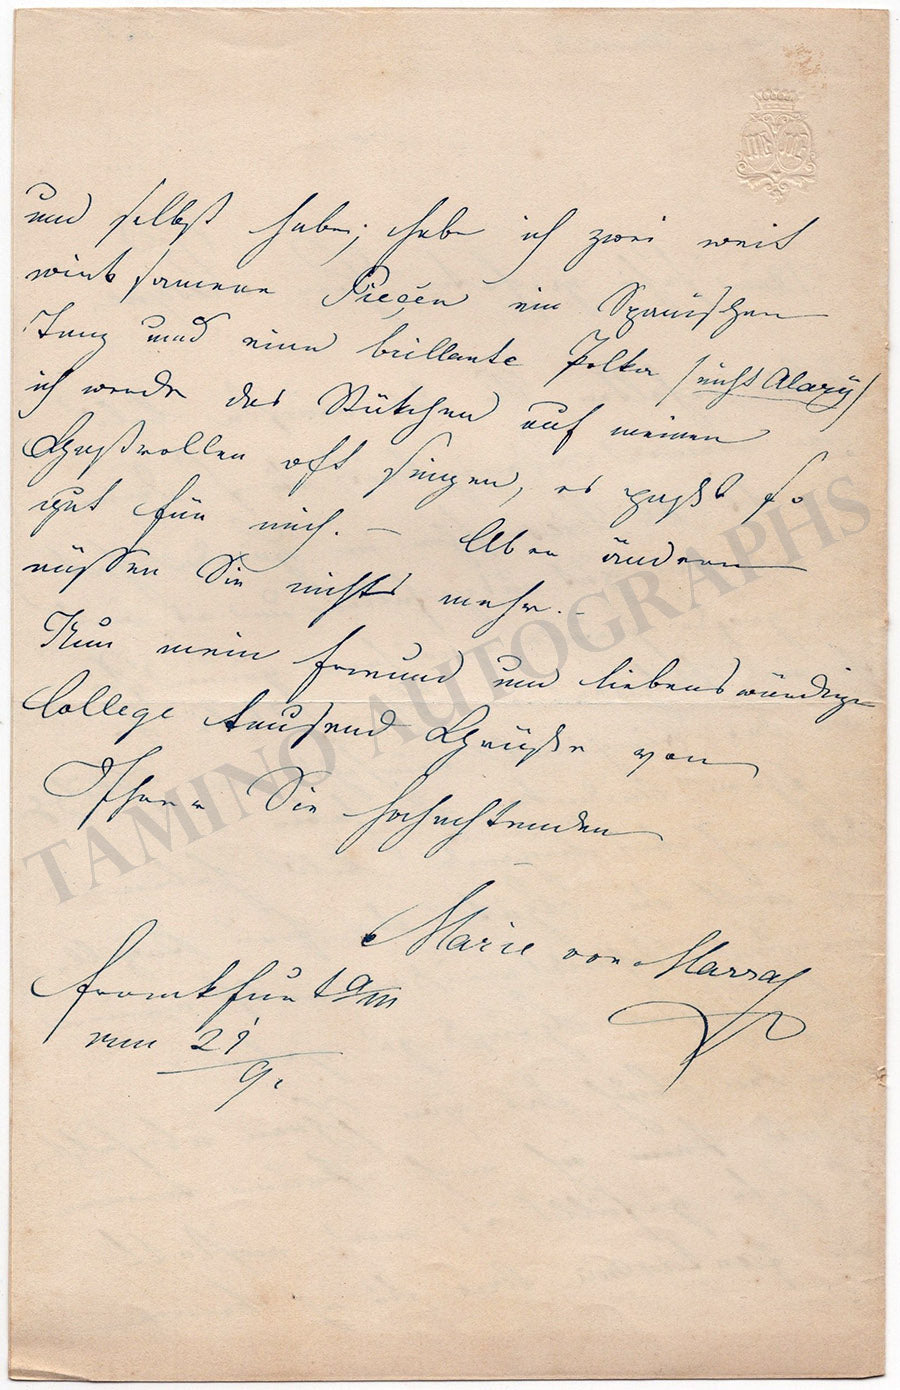 und selbst habe; habe ich zwei weit
wirksamere Pieçen ein Spanischen
Tanz und eine brillante Polka (nicht Alary)
ich werde das Stükchen auf meinen
Gastrollen oft singen, es paßt so
gut für mich. – Aber ändern
müssen Sie nichts mehr. –
Nun mein Freund und liebenswürdiger
College tausend Grüße von
Ihrer Sie hochachtenden
Marie von Marra
Frankfurt a/m
21/9.
TAMINO AUTOGRAPHS